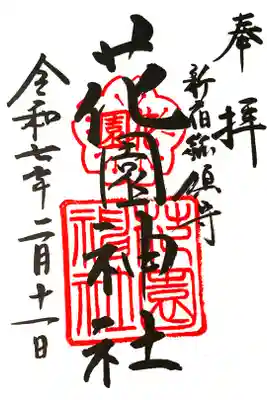 奉拝
新宿総鎮守
花園神社
令和七年二月十一日
花園神社